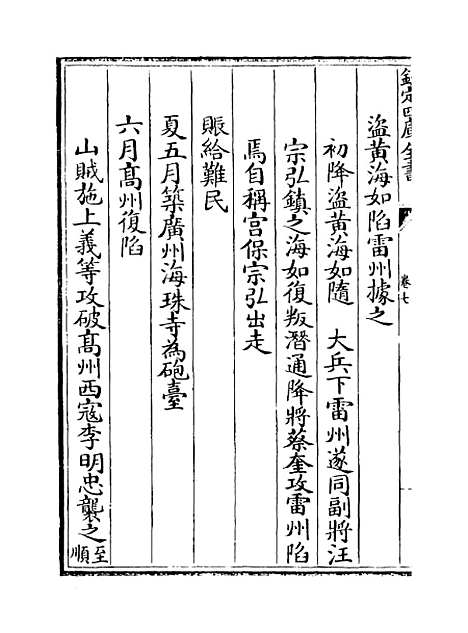 欽定四庫全書
卷七
盜黄海如陷雷州據之
初降盜黄海如隨　大兵下雷州遂同副將汪
宗弘鎮之海如復叛潛通降將蔡奎攻雷州陷
焉自稱宫保宗弘出走
賑給難民
夏五月築廣州海珠寺為砲臺
六月髙州復陷
山賊施上義等攻破髙州西寇李明忠襲之至順